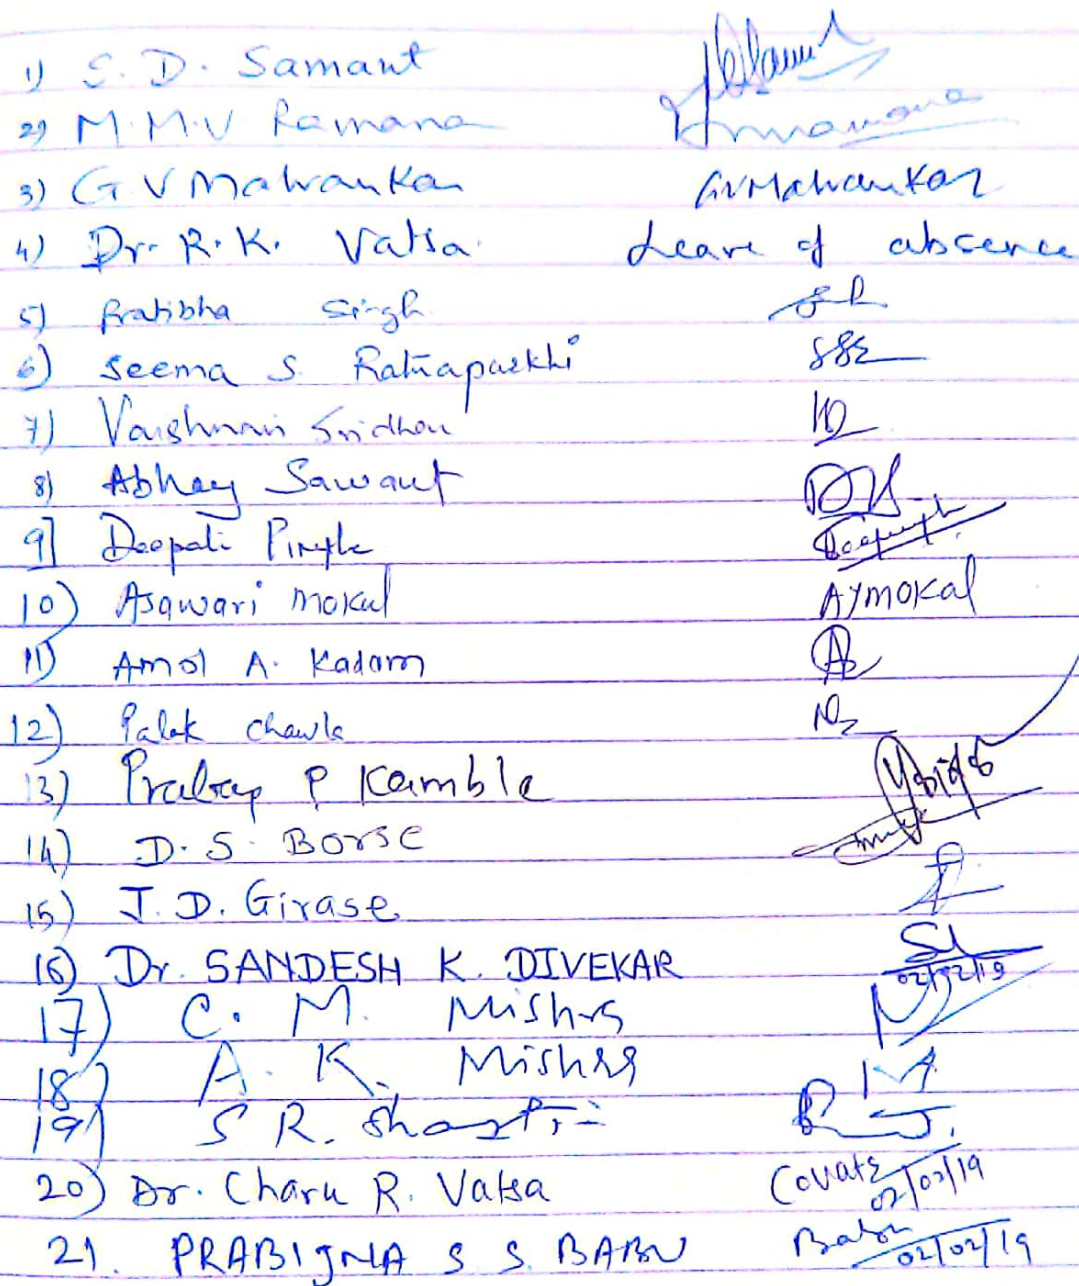 1) S. D. Samant
2) M.M.V Ramana
3) G V Malvankar GVMalvankar
4) Dr. R. K. Vatsa Leave of absence
5) Pratibha Singh
6) Seema S. Ratnaparkhi SSR
7) Vaishnavi Sridhar
8) Abhay Sawant
9] Deepali Pingle
10) Asawari Mokal AYMOKAL
11) Amol A. Kadam
12) Palak Chawla
13) Pratap P Kamble
14) D. S. Borse
15) J. D. Girase
16) Dr. SANDESH K. DIVEKAR 02/02/19
17) C. M. Mishra
18) A. K. Mishra
19) S R. Shastri
20) Dr. Charu R. Vatsa 02/02/19
21. PRABIJNA S S BABU Babu 02/02/19